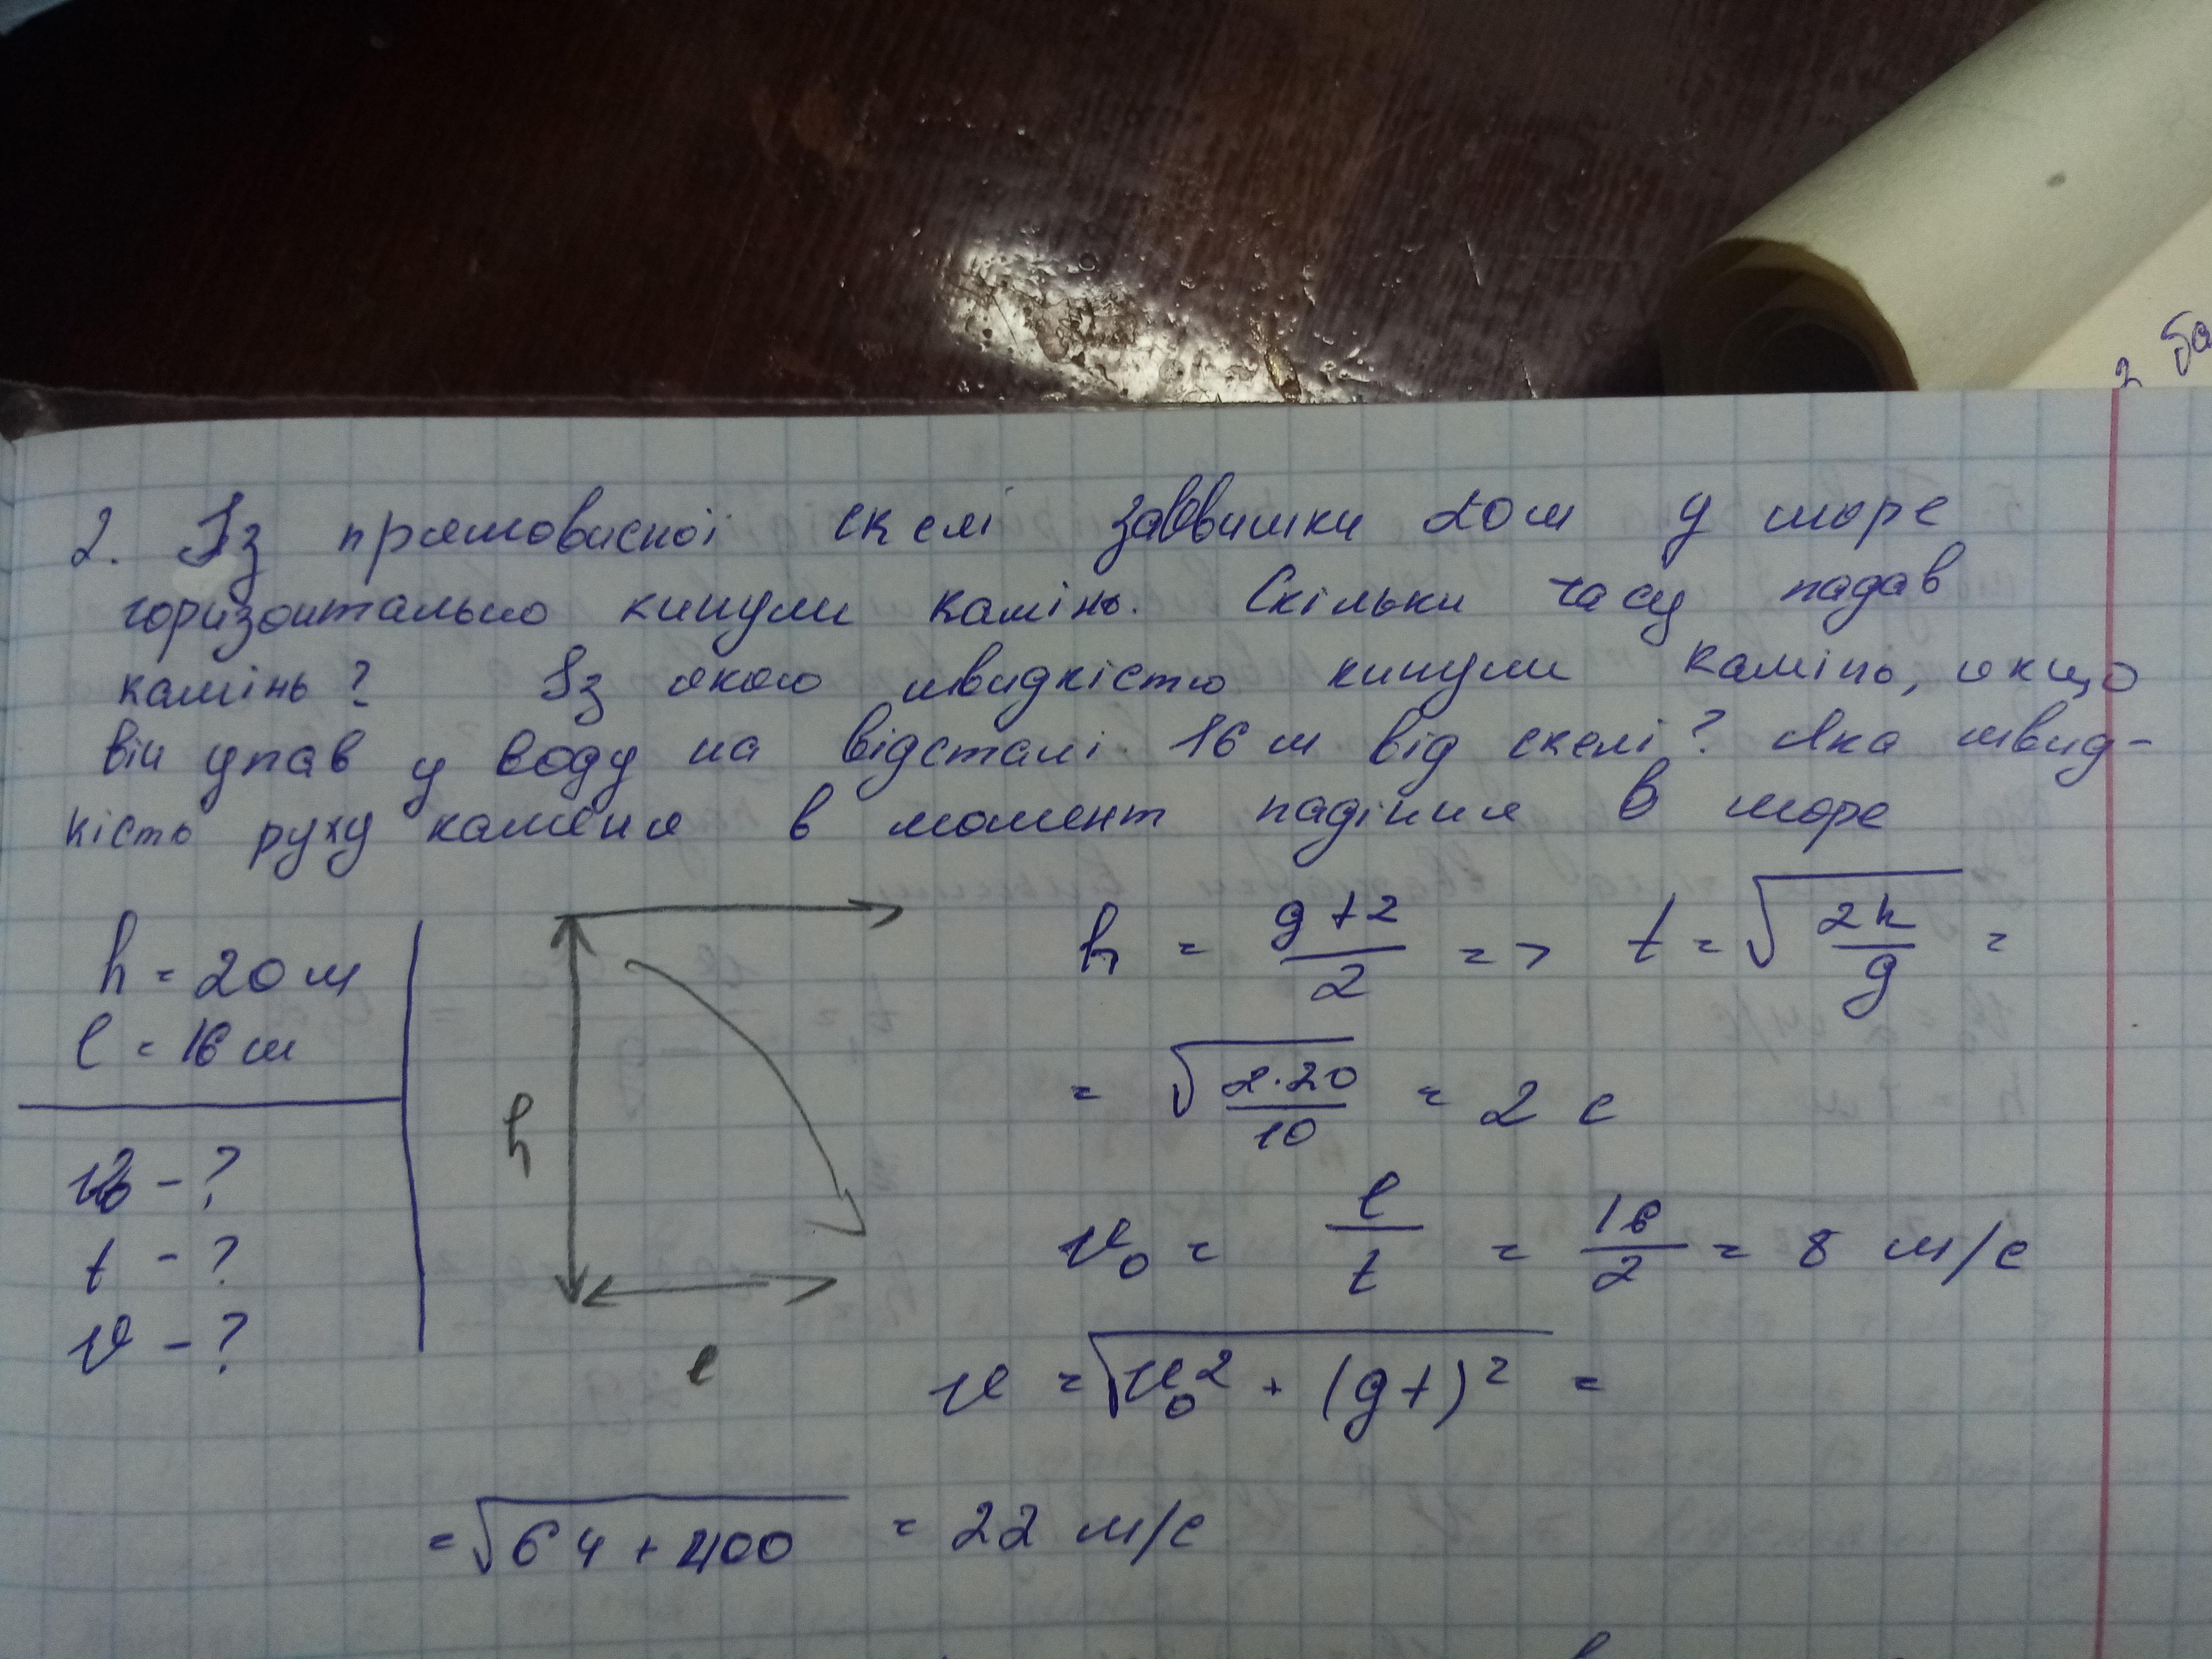 2 ба
2. Із прямовисної скелі заввишки 20 м у море
горизонтально кинули камінь. Скільки часу падав
камінь? Із якою швидкістю кинули камінь, якщо
він упав у воду на відстані 16 м від скелі? Яка швид-
кість руху каменя в момент падіння в море
h = 20 м
l = 16 м
v₀ - ?
t - ?
v - ?
h
l
h = gt2/2 => t = √(2h/g) =
= √(2·20/10) = 2 с
v₀ = l/t = 16/2 = 8 м/с
v = √(v₀² + (gt)²) =
= √(64 + 400) = 22 м/с